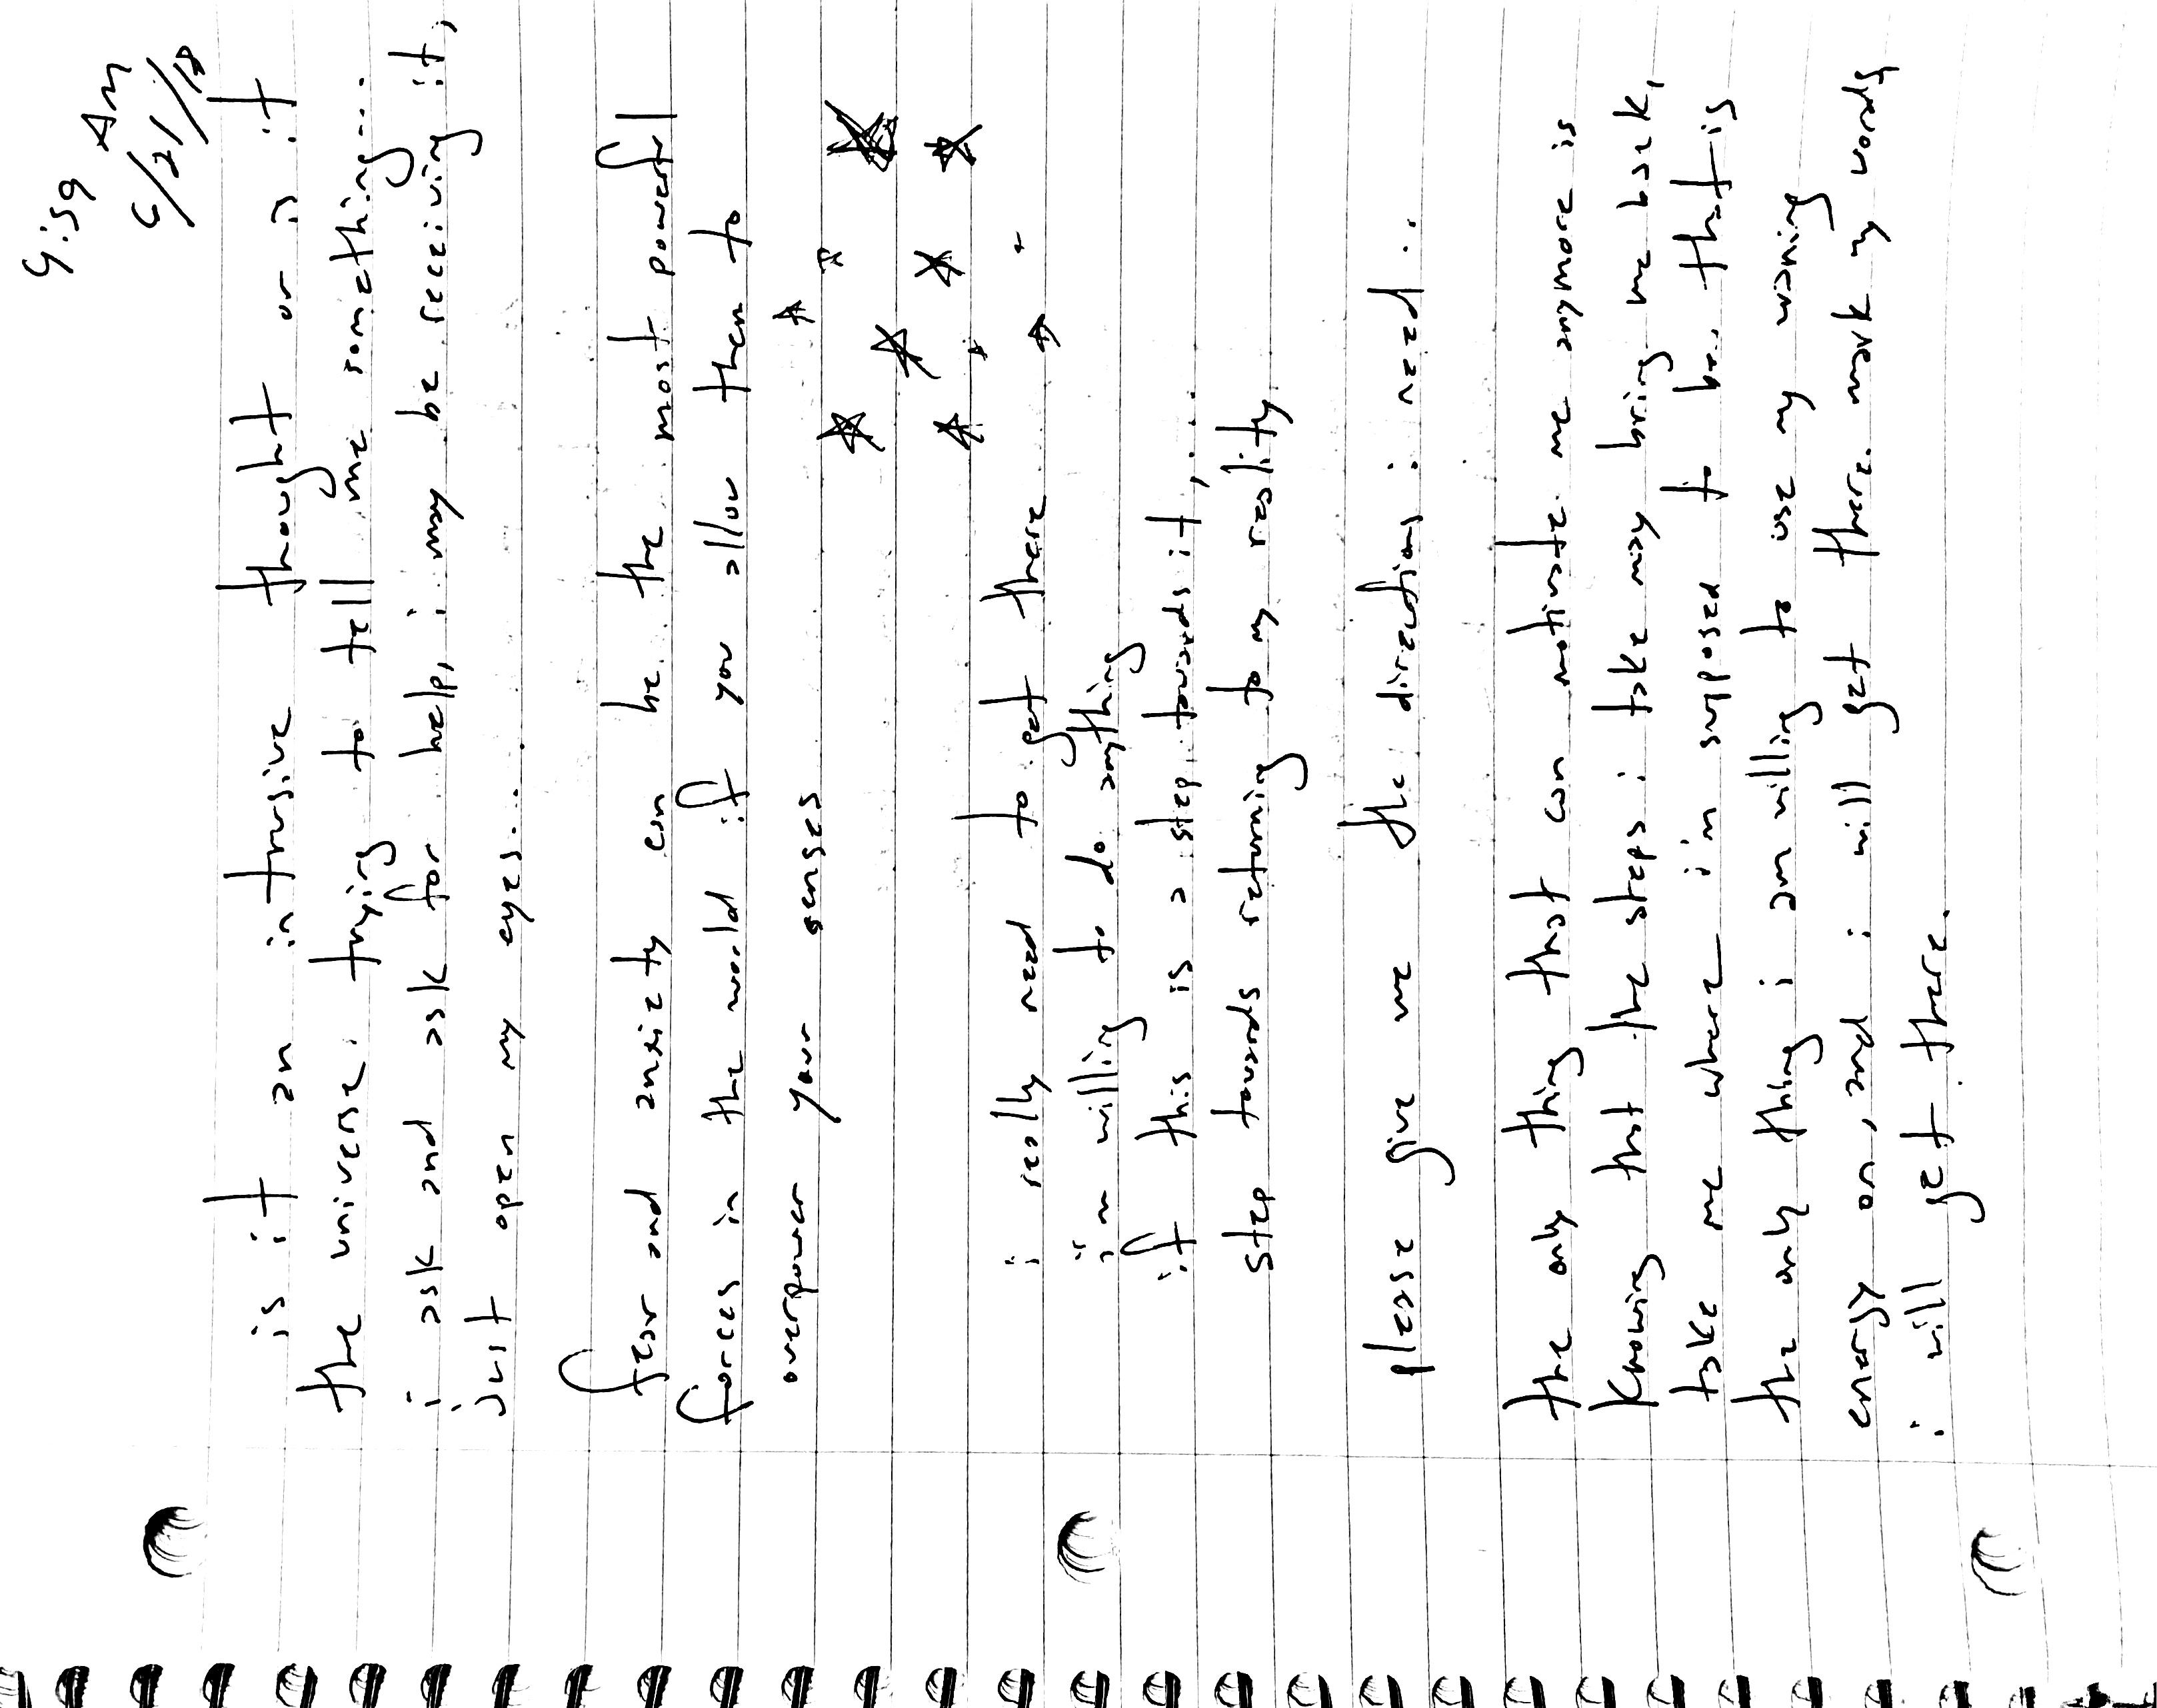 4:59
AM
6/21/18
is it an intrusive thought or is it
the universe trying to tell me something...
i ask and ask for help, i may be receiving it,
just open my eyes....
fear and anxiety can be the most powerful
forces in the world if you allow them to
overpower your senses
i really need to get there
i'm willing to do anything
if this is a step towards it,...
step towards returning to my reality
please give me the directions i need..
the only thing that can motivate me anymore is
knowing that the steps i take may bring me back,
take me where i'm supposed to be. that is
the only thing i am willing to use my waning
energy on, and i will get there. mark my words,
i will get there.